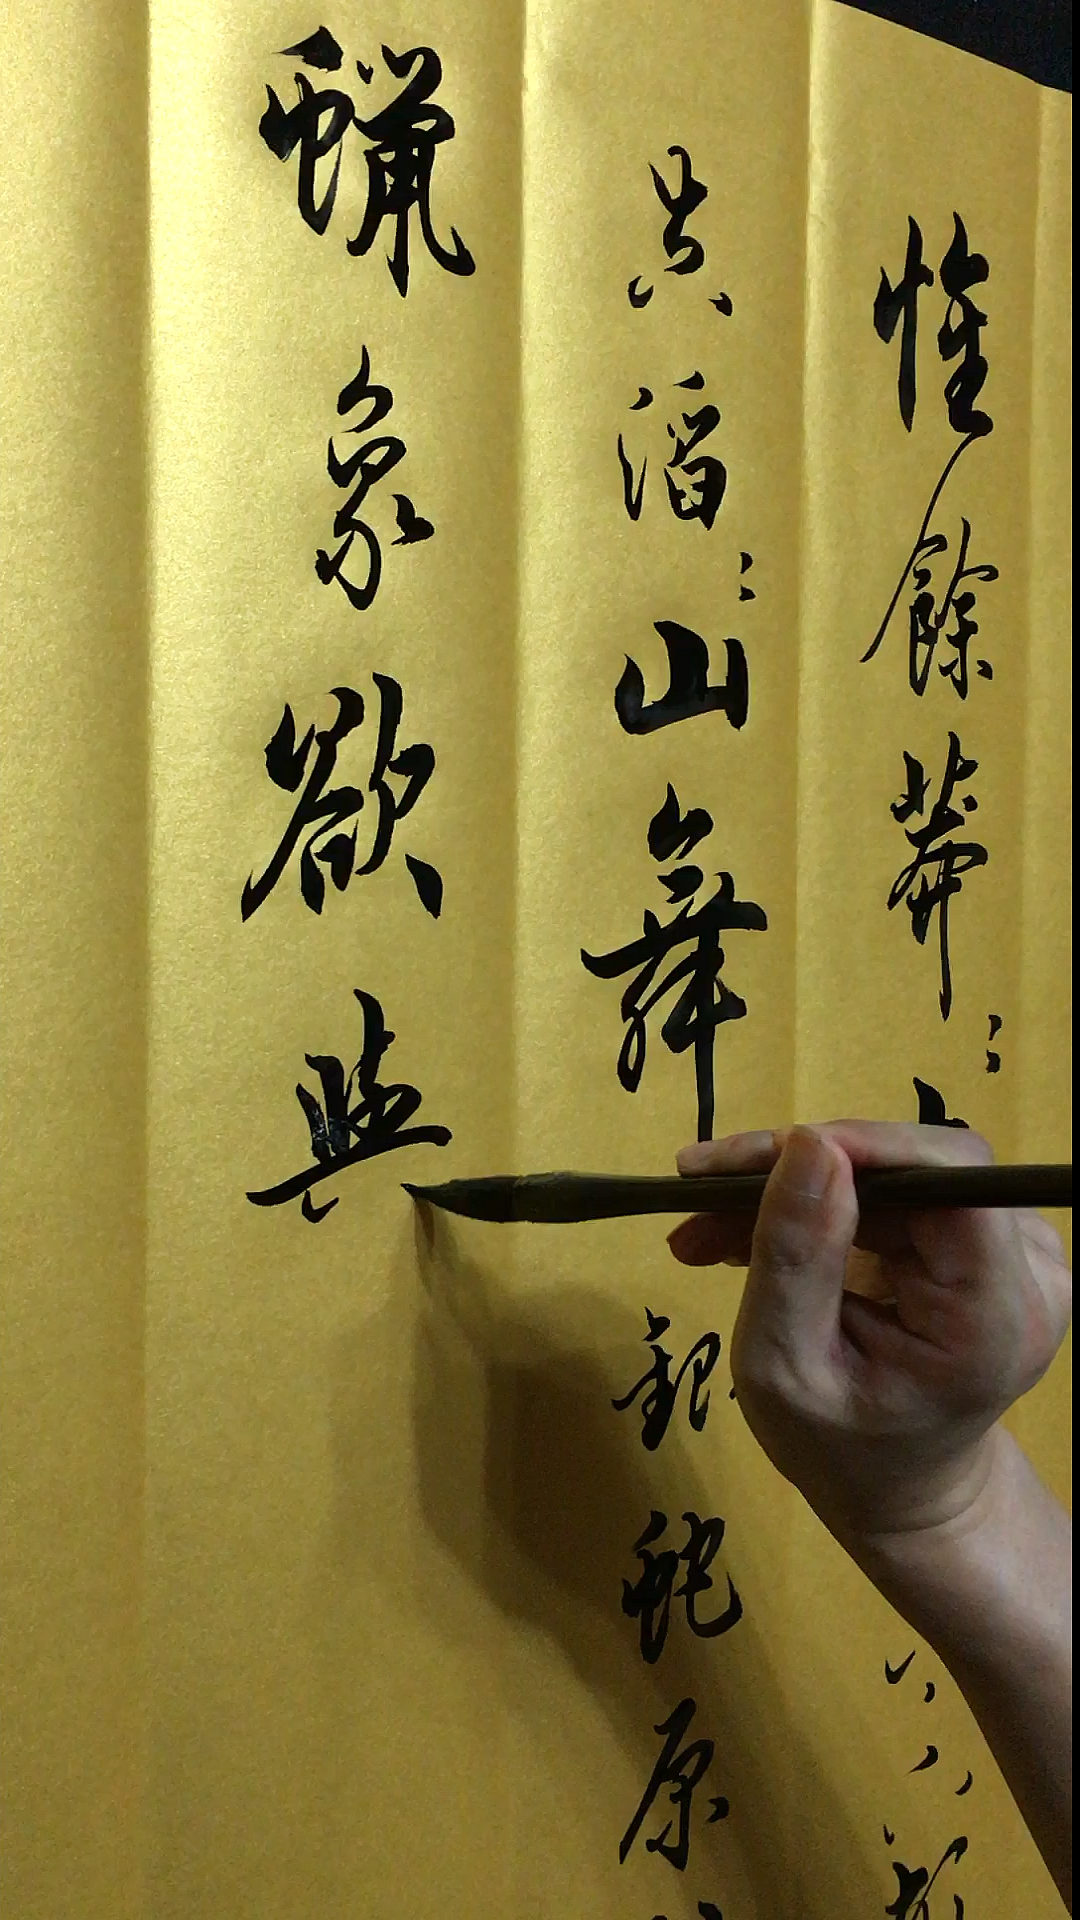 惟餘莽〻
失滔〻山舞銀蛇原
蠟象欲與